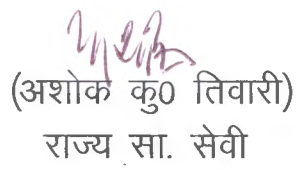 (अशोक कु0 तिवारी)
राज्य सा. सेवी